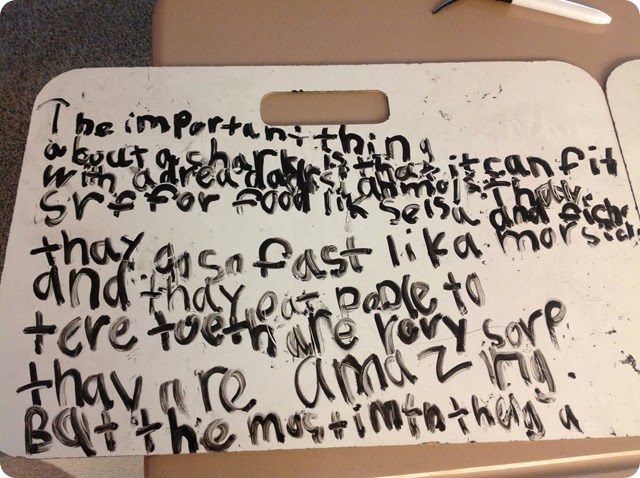 The important thing
about a shark is that it can fit
with a dreadd animols. Thay
srf for food lik selsa and fich
thay go so fast lika morsicl
and thay eat people to
tere teeth are rory sorp.
thay are amazing.
Bat the most imtn theg a